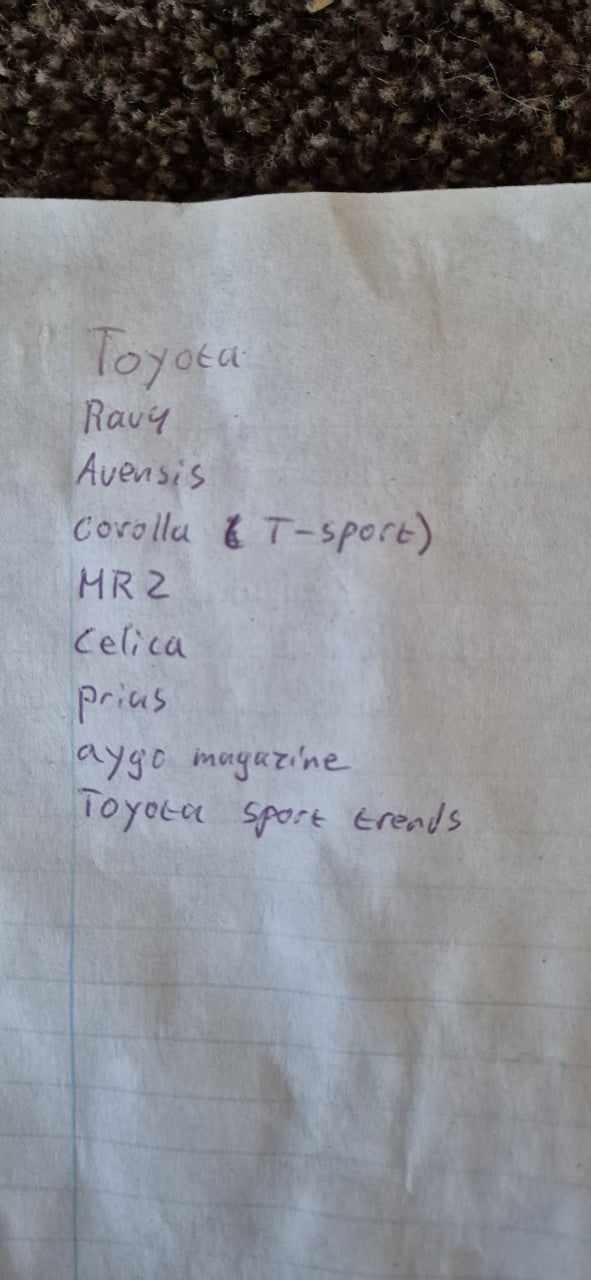 Toyota
Rav4
Avensis
Corolla (T-sport)
MR2
Celica
prius
aygo magazine
Toyota sport trends